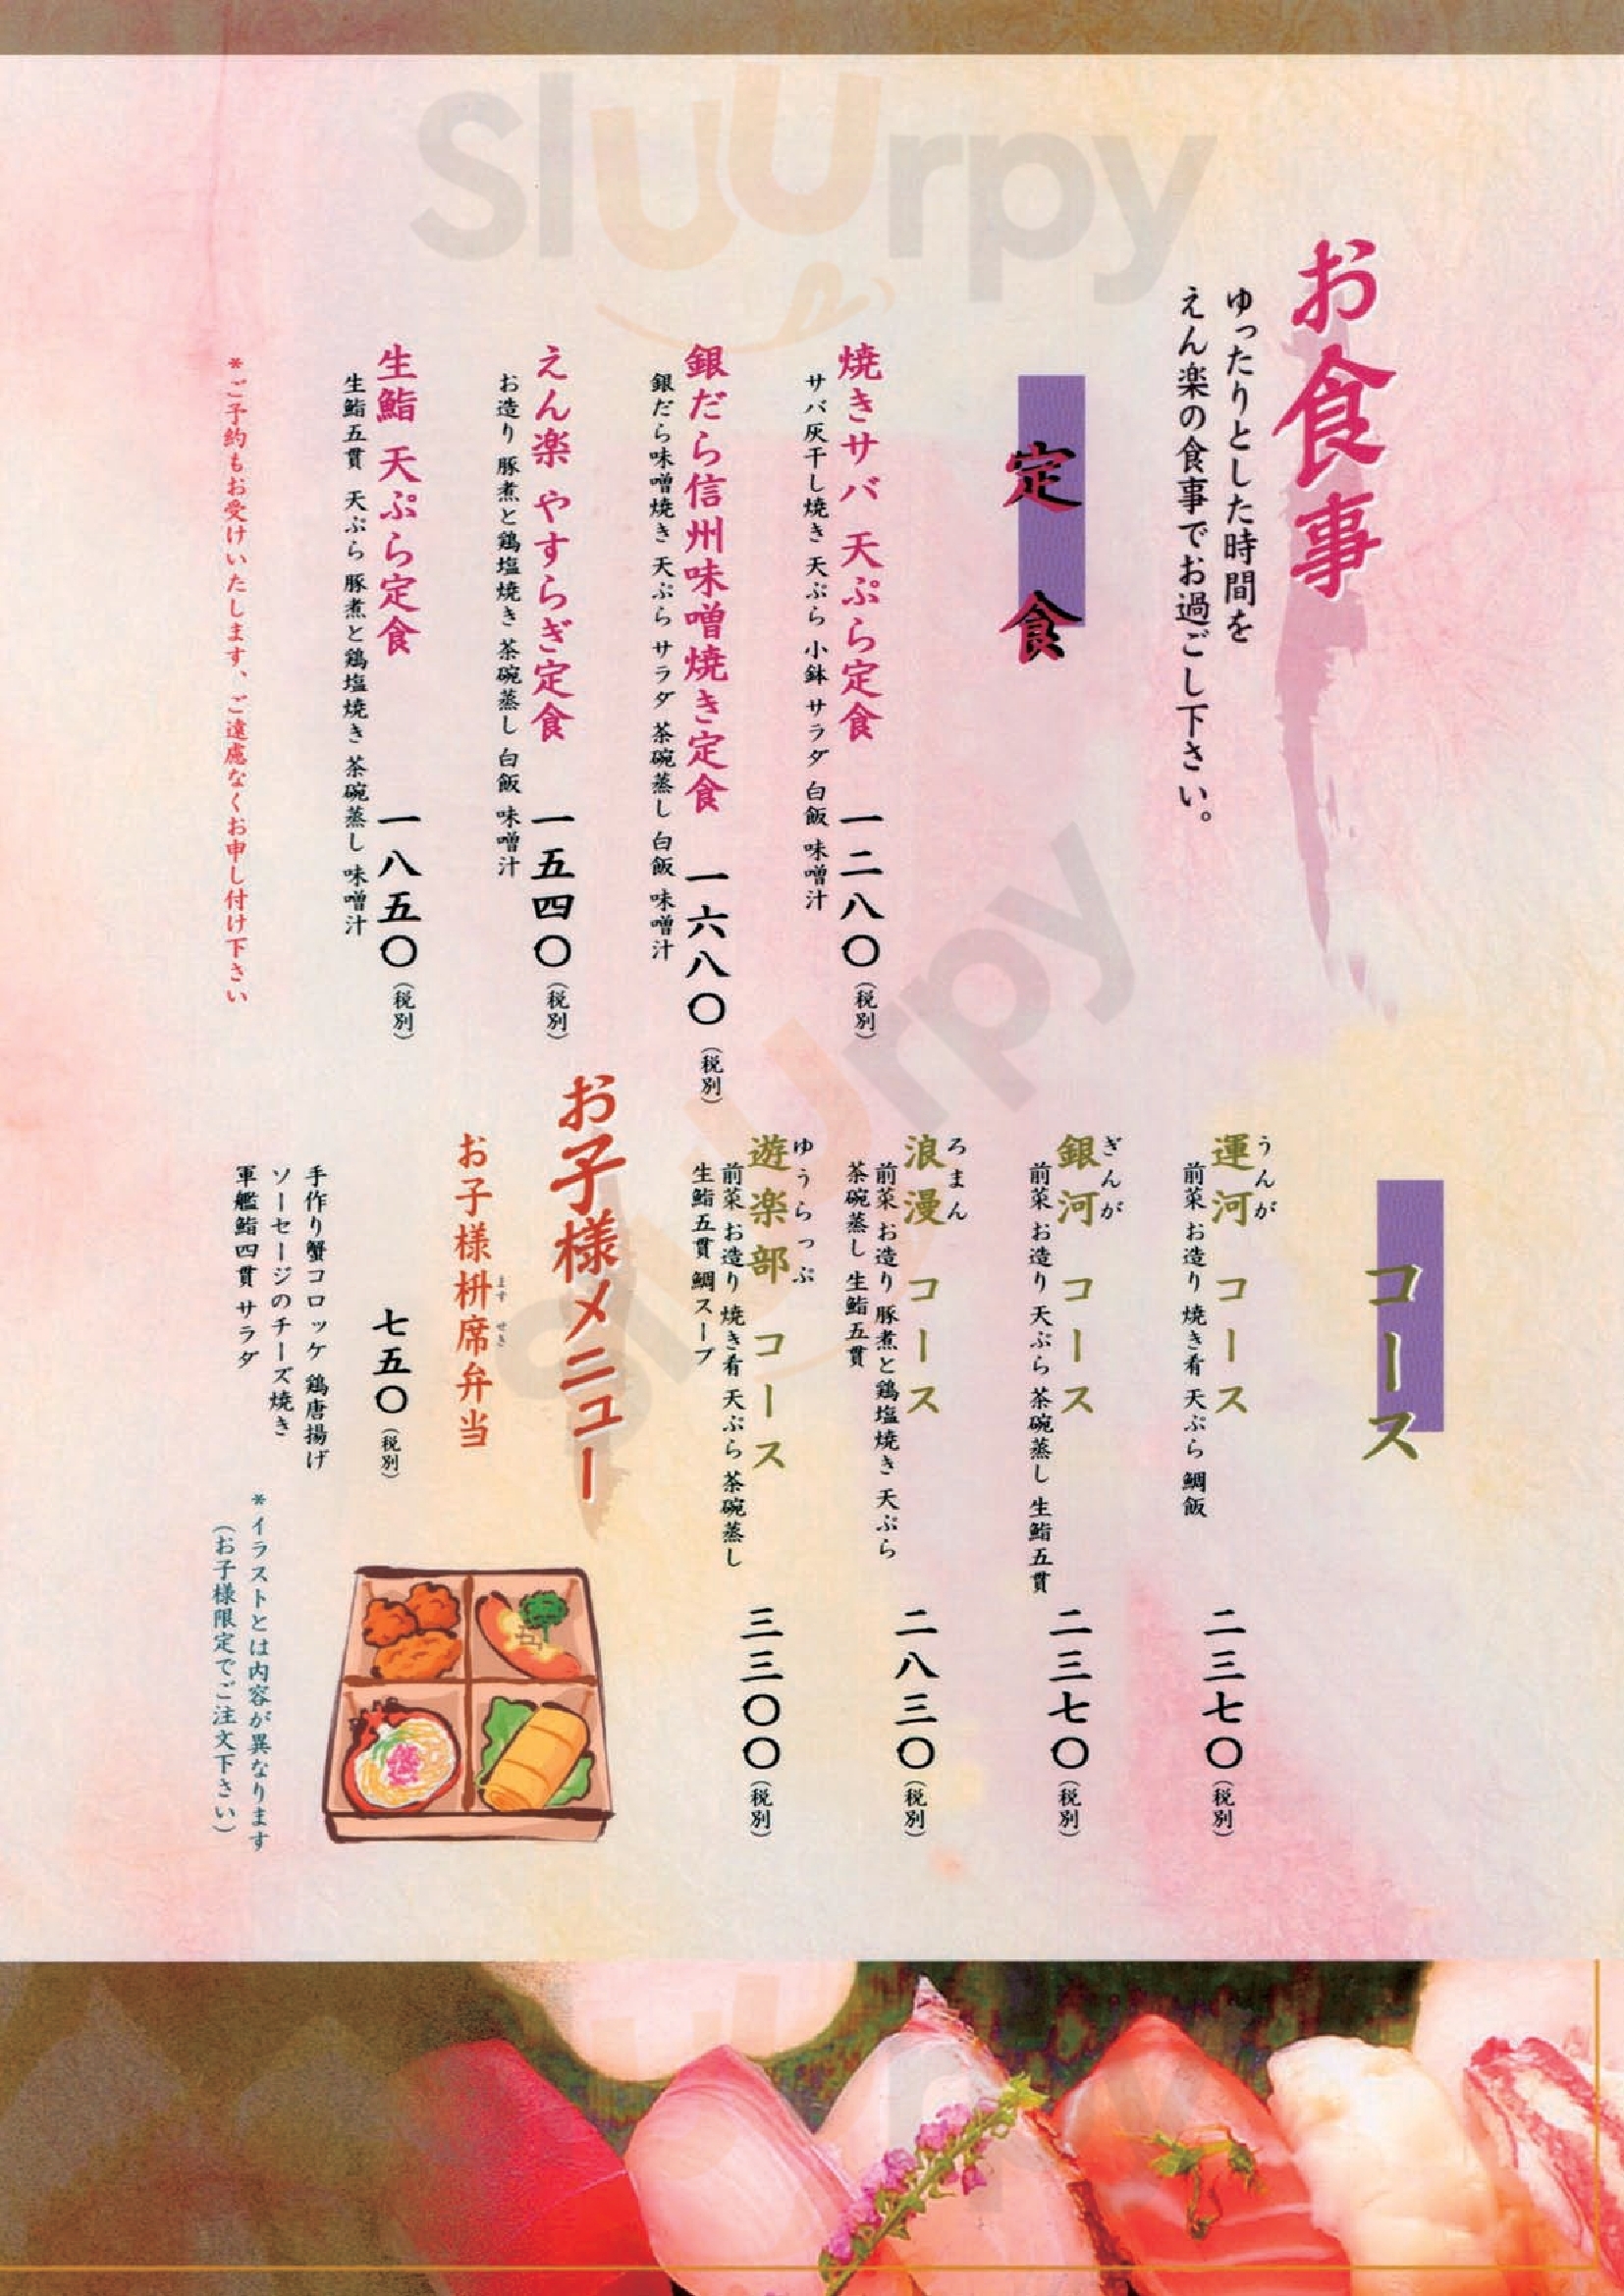 お食事
ゆったりとした時間を
えん楽の食事でお過ごし下さい。
定食
焼きサバ 天ぷら定食 一二八〇(税別)
サバ灰干し焼き 天ぷら 小鉢 サラダ 白飯 味噌汁
銀だら信州味噌焼き定食 一六八〇(税別)
銀だら味噌焼き 天ぷら サラダ 茶碗蒸し 白飯 味噌汁
えん楽 やすらぎ定食 一五四〇(税別)
お造り 豚煮と鶏塩焼き 茶碗蒸し 白飯 味噌汁
生鮨 天ぷら定食 一八五〇(税別)
生鮨五貫 天ぷら 豚煮と鶏塩焼き 茶碗蒸し 味噌汁
*ご予約もお受けいたします、ご遠慮なくお申し付け下さい
コース
うんが
運河 コース 二三七〇(税別)
前菜 お造り 焼き肴 天ぷら 鯛飯
ぎんが
銀河 コース 二三七〇(税別)
前菜 お造り 天ぷら 茶碗蒸し 生鮨五貫
ろまん
浪漫 コース 二八三〇(税別)
前菜 お造り 豚煮と鶏塩焼き 天ぷら
茶碗蒸し 生鮨五貫
ゆうらっぷ
遊楽部 コース 三三〇〇(税別)
前菜 お造り 焼き肴 天ぷら 茶碗蒸し
生鮨五貫 鯛スープ
お子様メニュー
ます せき
お子様枡席弁当
七五〇(税別)
手作り蟹コロッケ 鶏唐揚げ
ソーセージのチーズ焼き
軍艦鮨四貫 サラダ
*イラストとは内容が異なります
(お子様限定でご注文下さい)
Sluurpy
Sluurpy
Sluurpy